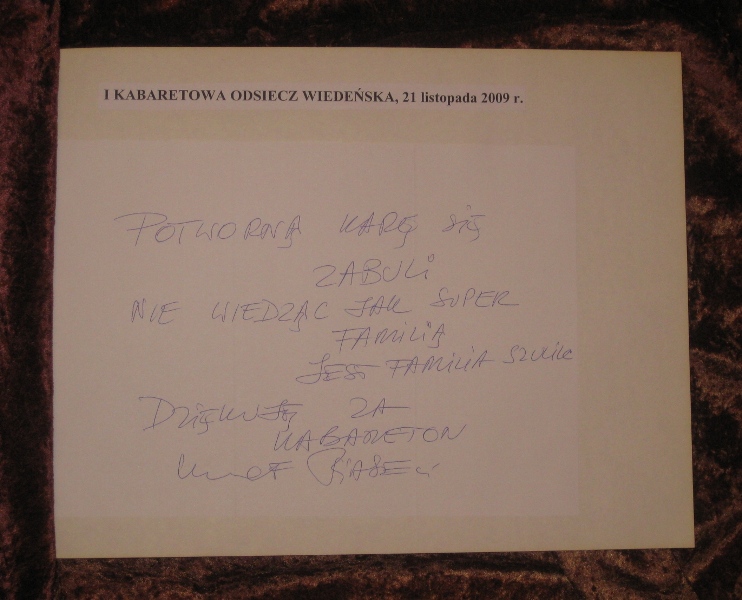 I KABARETOWA ODSIECZ WIEDEŃSKA, 21 listopada 2009 r.
POTWORNĄ KARĘ SIĘ
ZABULI
NIE WIEDZĄC JAK SUPER
FAMILIĄ
JEST FAMILIA SZULIC
DZIĘKUJĘ ZA
KABARETON
PIASECKI